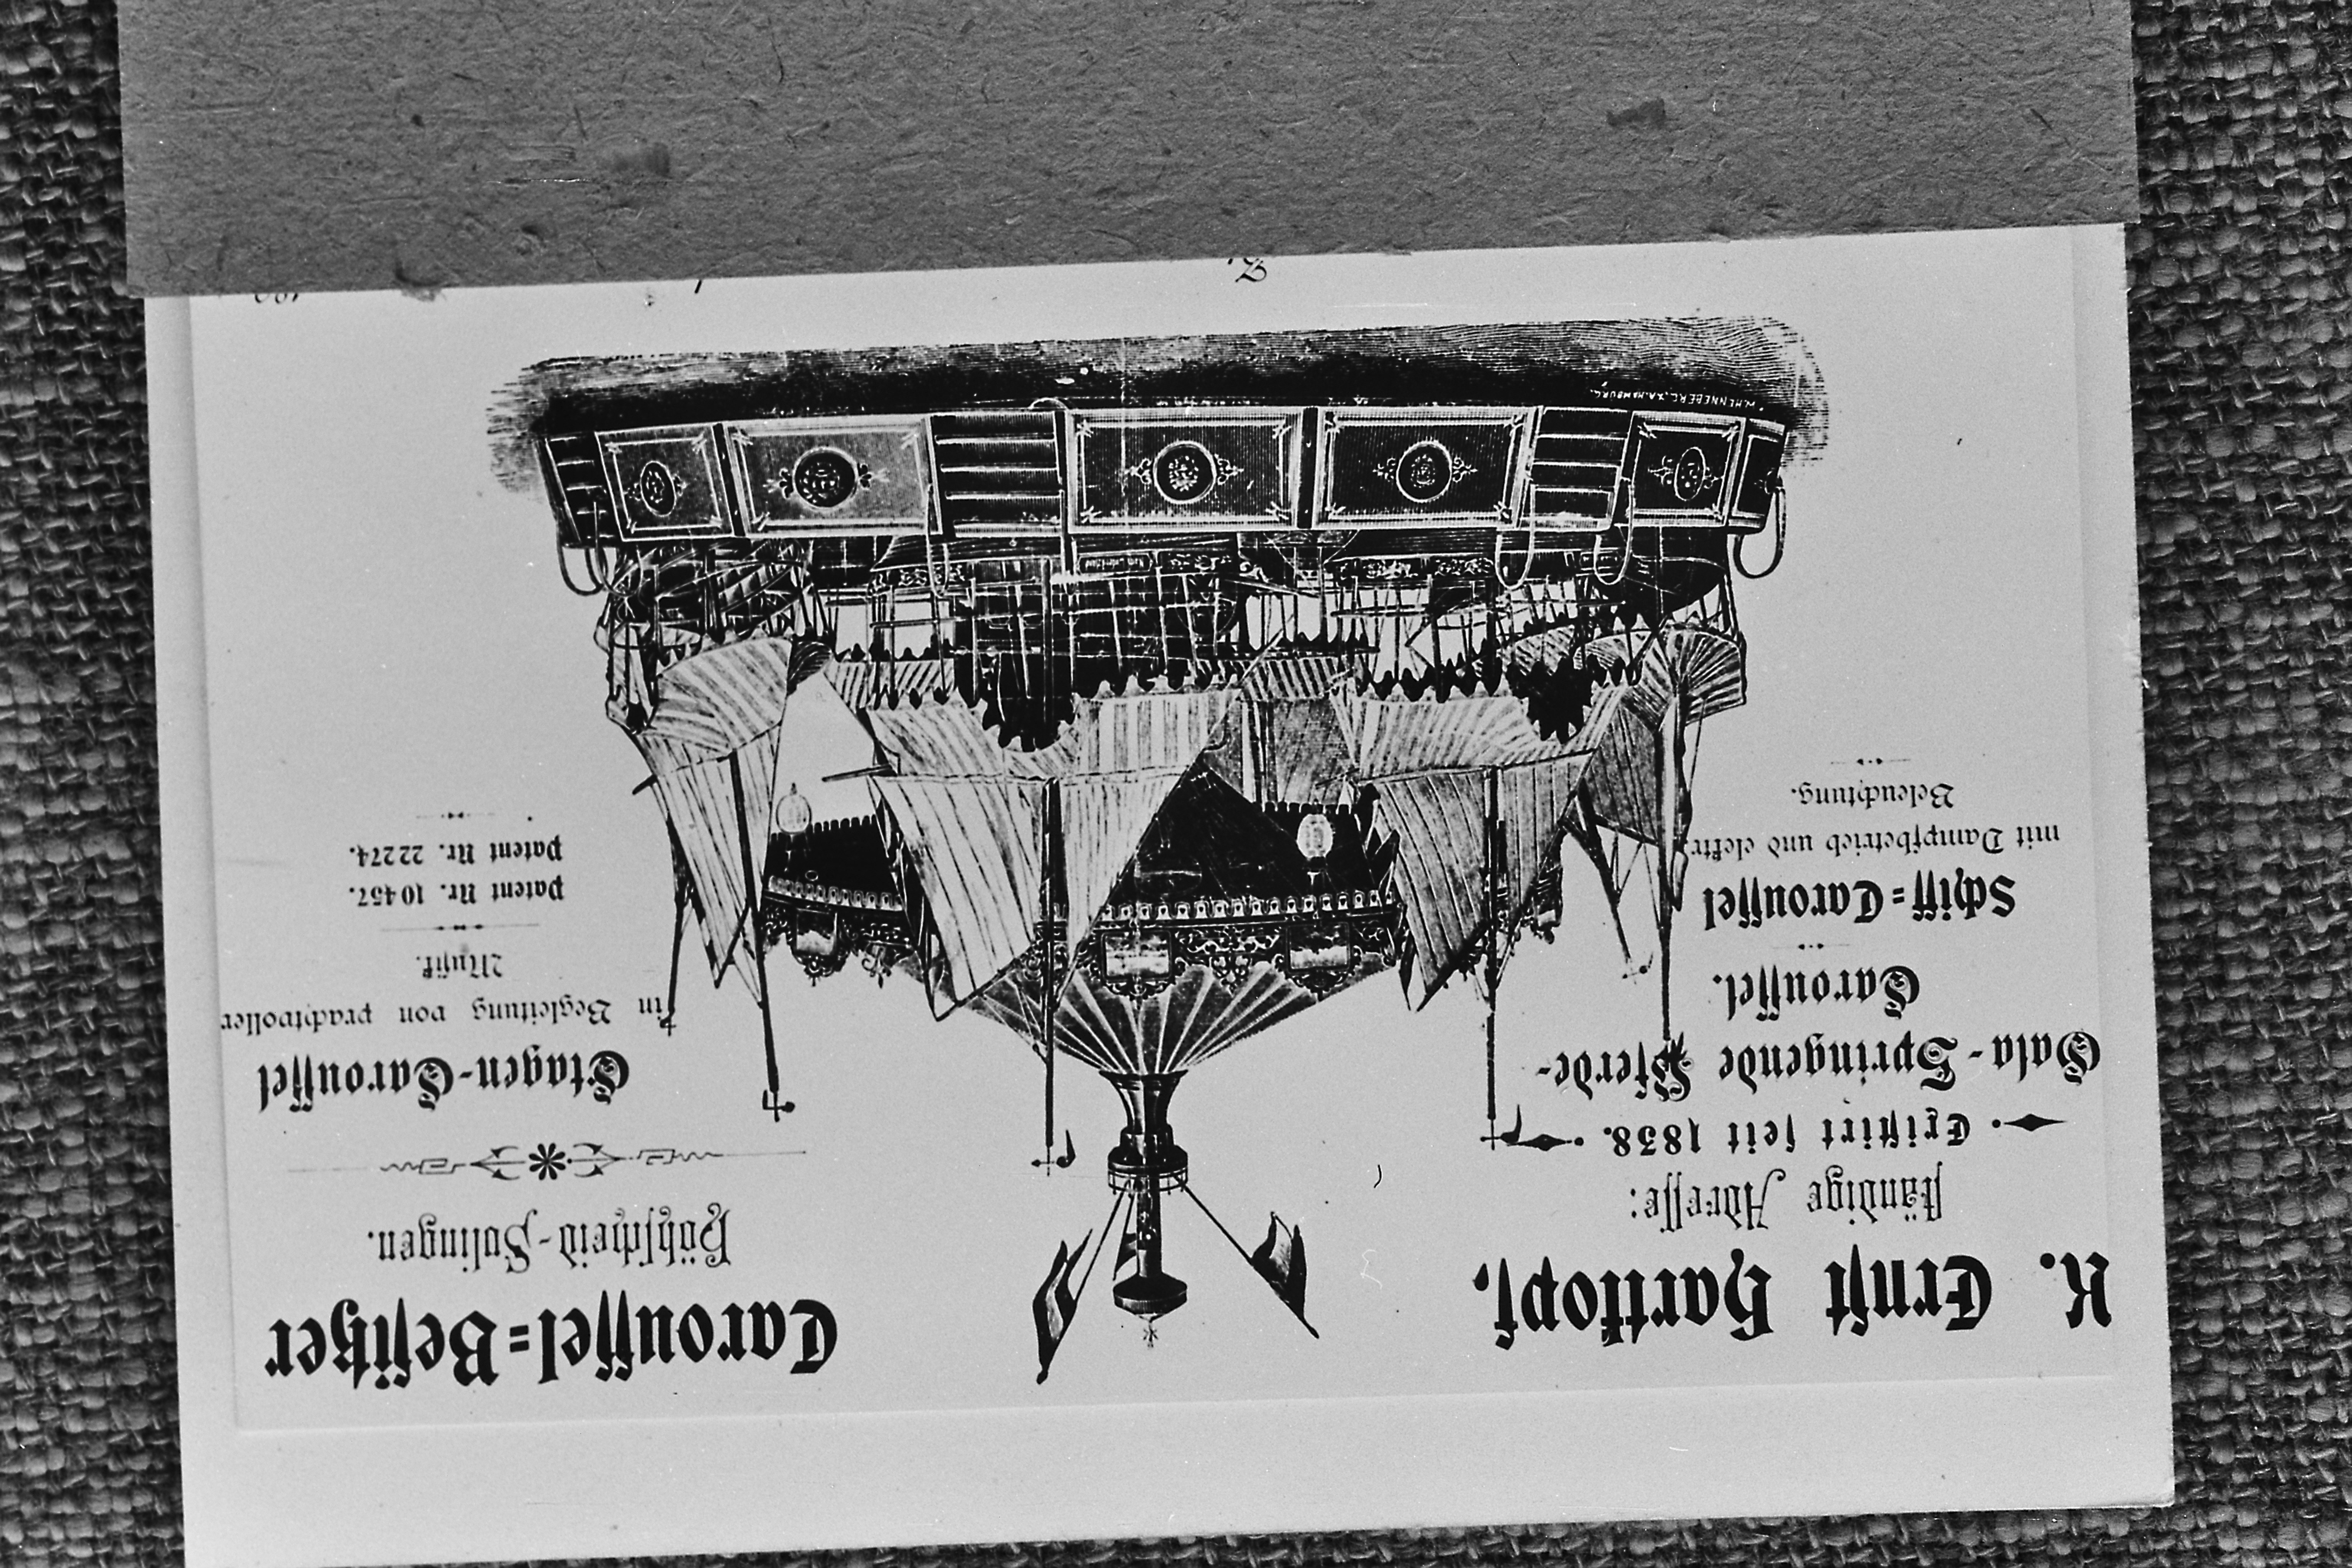 K. Ernst Hartkopf,
ständige Adresse:
Existirt seit 1838.
Gala-Springende Pferde-
Caroussel.
Schiff=Caroussel
mit Dampfbetrieb und elektr.
Beleuchtung.
Caroussel=Besitzer
Höhscheid-Solingen.
Etagen-Caroussel
in Begleitung von prachtvoller
Musik.
Patent Nr. 10457.
Patent Nr. 22274.
W. HENNEBERG, X.A. HAMBURG.